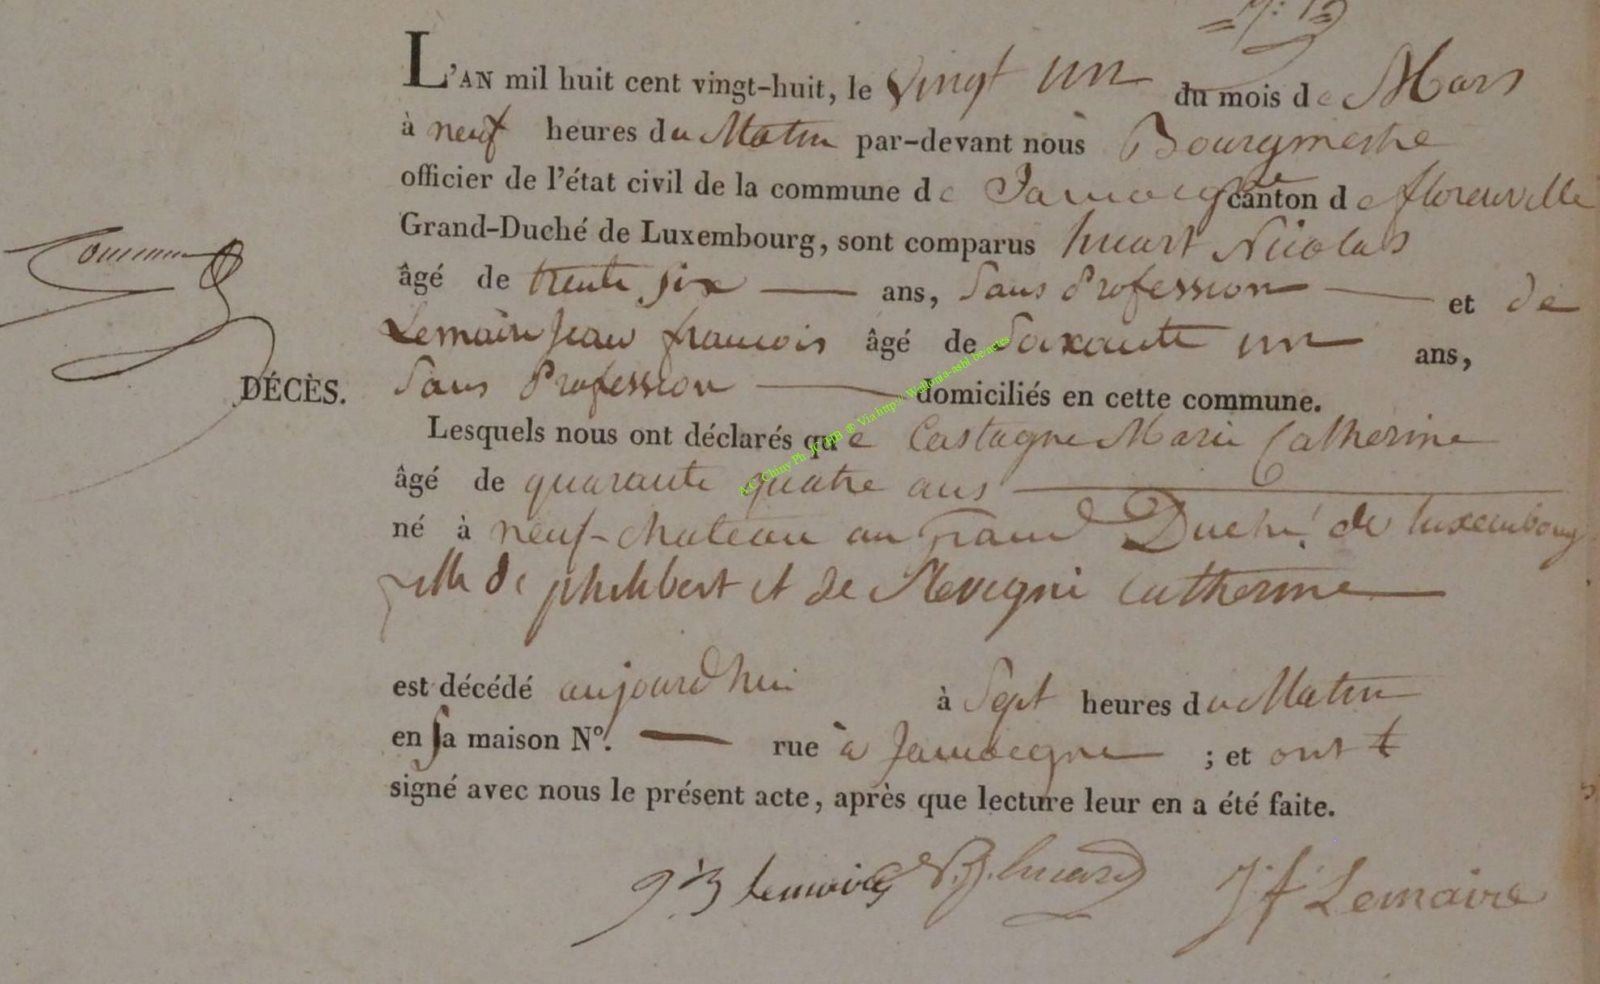 L'AN mil huit cent vingt-huit, le vingt un du mois de Mars
à neuf heures du Matin par-devant nous Bourgmestre
officier de l'état civil de la commune de Jamoigne canton de florenville
Grand-Duché de Luxembourg, sont comparus huart Nicolas
âgé de trente six ans, Sans Profession et de
Lemaire Jean francois âgé de Soixante un ans,
DÉCÈS. Sans Profession domiciliés en cette commune.
Lesquels nous ont déclarés que Castagne Marie Catherine
âgé de quarante quatre ans
né à neuf-chateau au Grand Duché de luxembourg
fille de philibert et de Catherine
est décédé aujourd'hui à Sept heures du Matin
en sa maison Nº. rue à Jamoigne ; et ont
signé avec nous le présent acte, après que lecture leur en a été faite.
Lemaire J f Lemaire